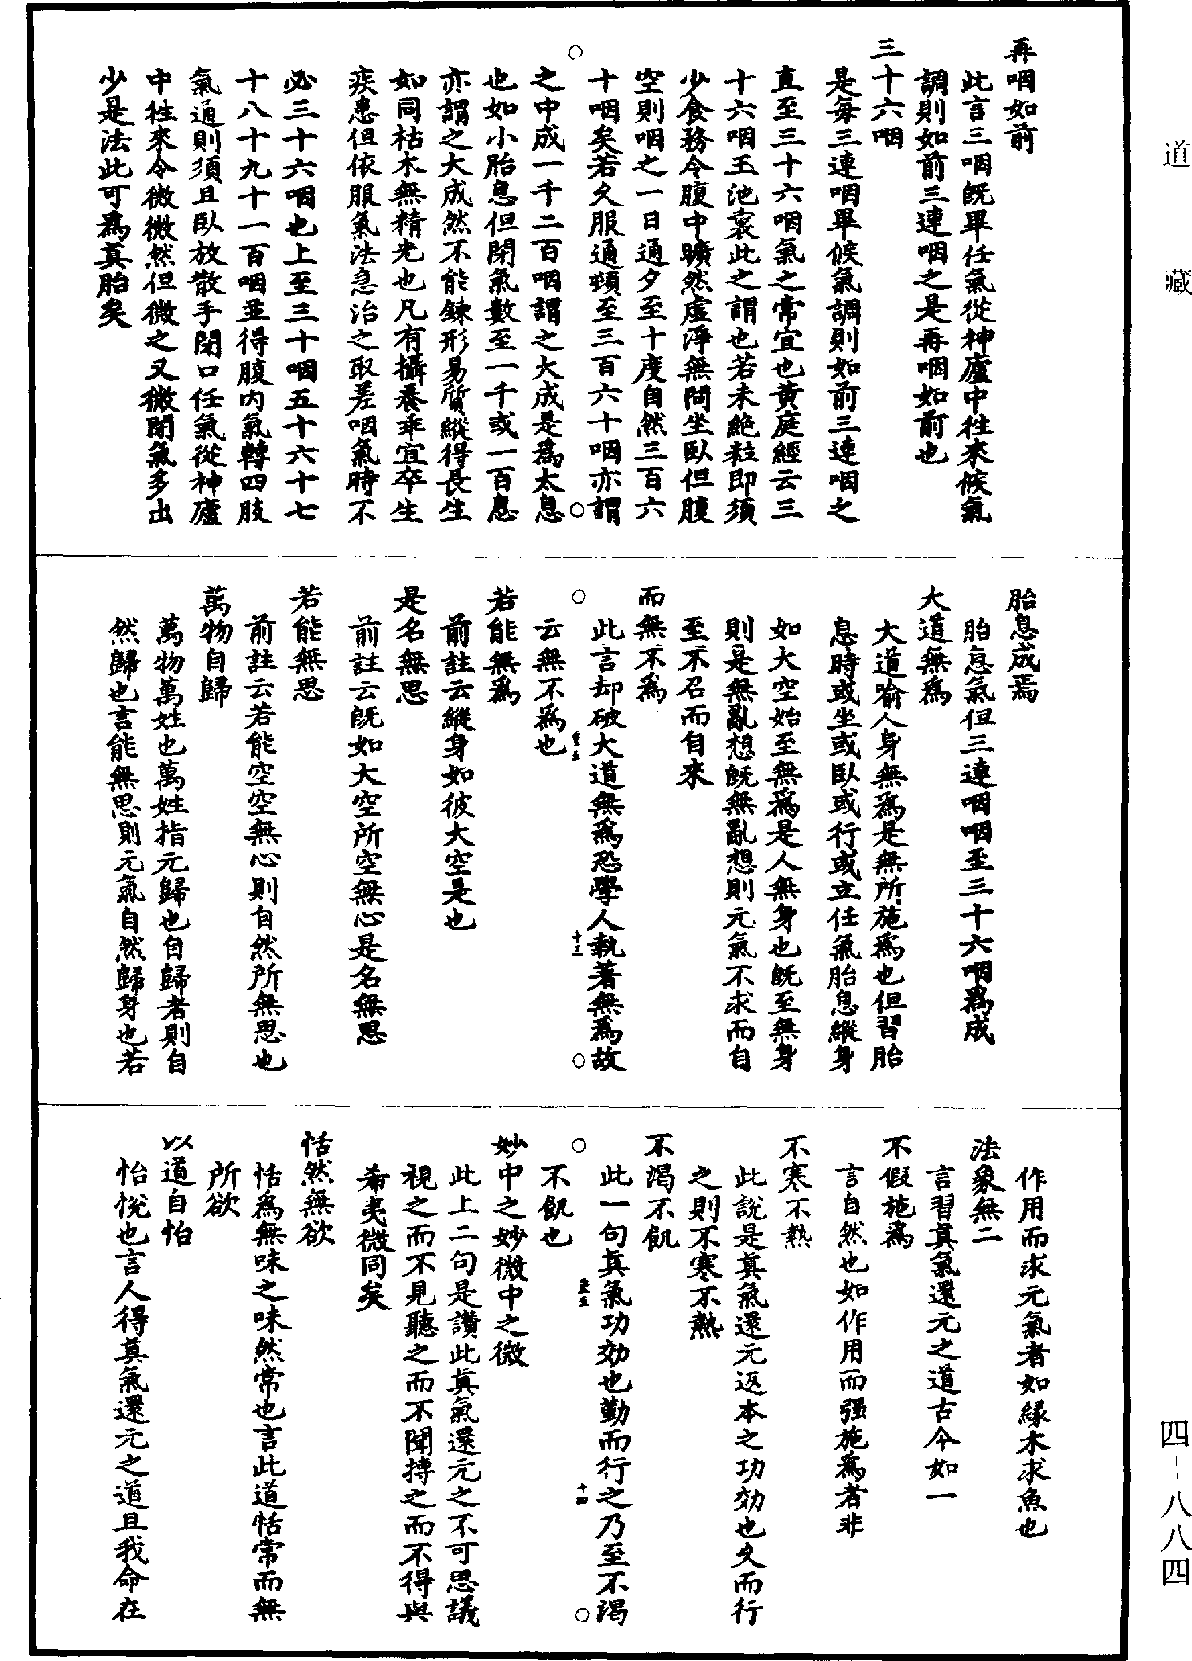 道藏
再咽如前
此言三咽既畢任氣從神廬中往來候氣
調則如前三連咽之是再咽如前也
三十六咽
是每三連咽畢候氣調則如前三連咽之
直至三十六咽氣之常宜也黃庭經云三
十六咽玉池裏此之謂也若未絕粒即須
少食務令腹中曠然虛淨無問坐臥但腹
空則咽之一日通夕至十度自然三百六
十咽矣若久服通頓至三百六十咽亦謂
之中成一千二百咽謂之大成是為太息
也如小胎息但閉氣數至一千或一百息
亦謂之大成然不能鍊形易質縱得長生
如同枯木無精光也凡有攝養乖宜卒生
疾患但依服氣法急治之取差咽氣時不
必三十六咽也上至三十咽五十六十七
十八十九十一百咽並得腹內氣轉四肢
氣通則須且臥放散手閉口任氣從神廬
中往來令微微然但微之又微閉氣多出
少是法此可為真胎矣
胎息成焉
胎息氣但三連咽咽至三十六咽為成
大道無為
大道喻人身無為是無所施為也但習胎
息時或坐或臥或行或立任氣胎息縱身
如大空始至無為是人無身也既至無身
則是無亂想既無亂想則元氣不求而自
至不召而自來
而無不為
此言却破大道無為恐學人執著無為故
云無不為也
十三
若能無為
前註云縱身如彼大空是也
是名無思
前註云既如大空所空無心是名無思
若能無思
前註云若能空空無心則自然所無思也
萬物自歸
萬物萬姓也萬姓指元歸也自歸者則自
然歸也言能無思則元氣自然歸身也若
作用而求元氣者如緣木求魚也
法象無二
言習真氣還元之道古今如一
不假施為
言自然也如作用而强施為者非
不寒不熱
此說是真氣還元返本之功効也久而行
之則不寒不熱
不渴不飢
此一句真氣功効也勤而行之乃至不渴
不飢也
十四
妙中之妙微中之微
此上二句是讚此真氣還元之不可思議
視之而不見聽之而不聞摶之而不得與
希夷微同矣
恬然無欲
恬為無味之味然常也言此道恬常而無
所欲
以道自怡
怡悅也言人得真氣還元之道且我命在
四-八八四